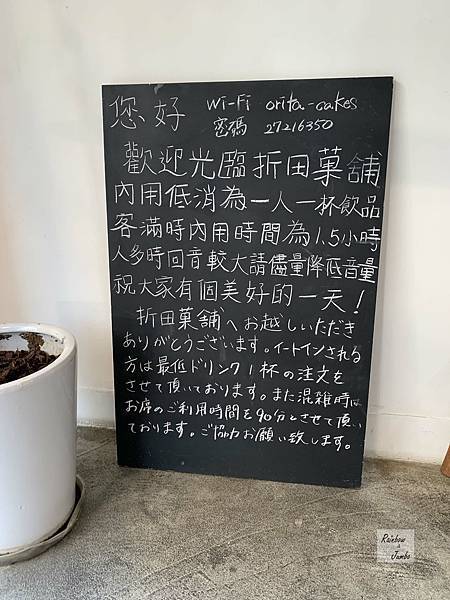 您好 Wi-Fi orita-cakes
密碼 27216350
歡迎光臨折田菓舖
內用低消為一人一杯飲品
客滿時內用時間為1.5小時
人多時回音較大請儘量降低音量
祝大家有個美好的一天!
折田菓舖へお越しいただき
ありがとうございます。イートインされる
方は最低ドリンク1杯の注文を
させて頂いております。また混雑時は
お席のご利用時間を90分とさせて頂い
ております。ご協力お願い致します。
Rainbow
&
Jambo